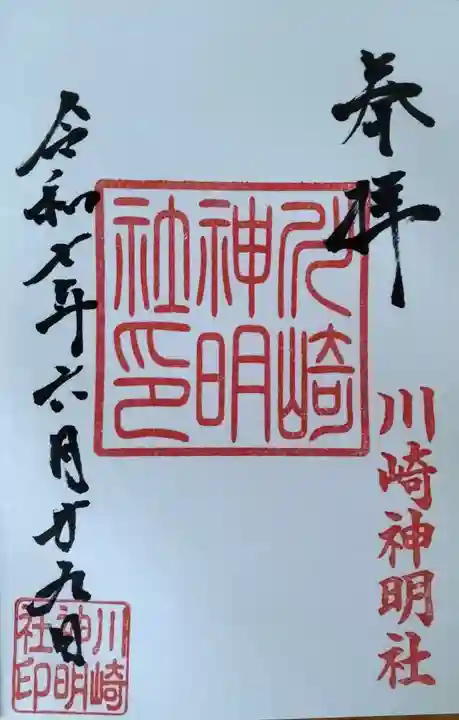 奉拝
川崎神明社
川崎
神明
社印
令和七年六月廿九日
川崎
神明
社印